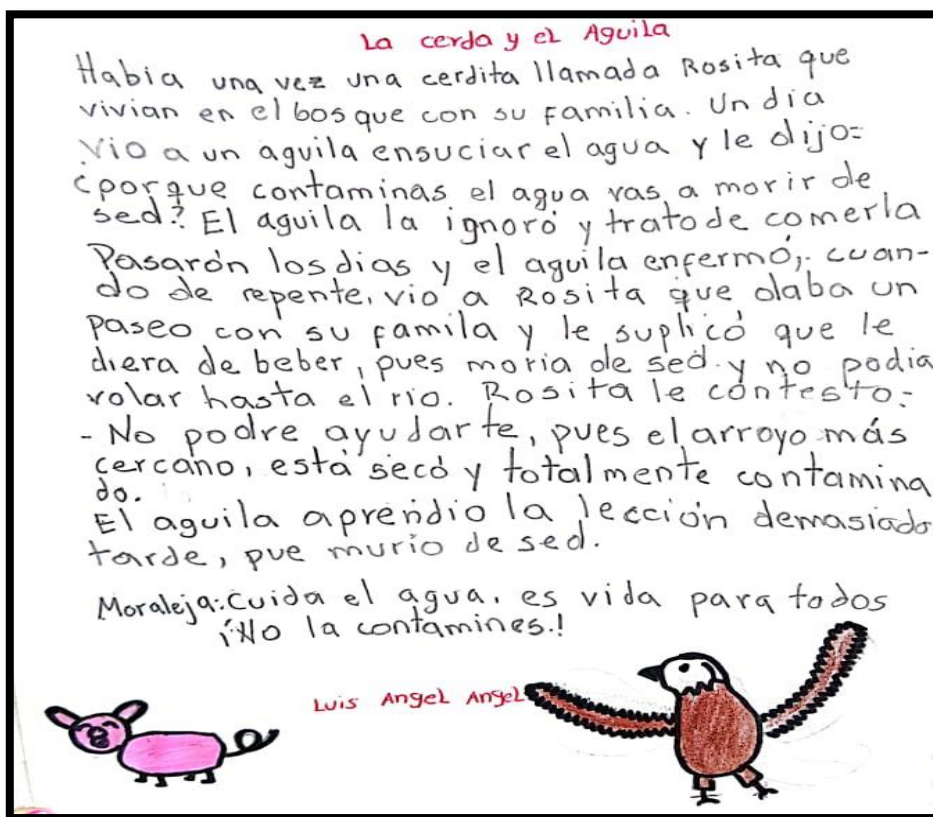 La cerda y el Aguila
Habia una vez una cerdita llamada Rosita que
vivian en el bosque con su familia. Un dia
Vio a un aguila ensuciar el agua y le dijo=
¿porque contaminas el agua vas a morir de
sed? El aguila la ignoró y trato de comerla
Pasarón los dias y el aguila enfermó, cuan-
do de repente, vio a Rosita que daba un
paseo con su famila y le suplicó que le
diera de beber, pues moria de sed y no podia
volar hasta el rio. Rosita le contesto:
- No podre ayudarte, pues el arroyo más
cercano, está secó y totalmente contamina
do.
El aguila aprendio la lección demasiado
tarde, pue murio de sed.
Moraleja: Cuida el agua, es vida para todos
¡No la contamines.!
Luis Angel Angel